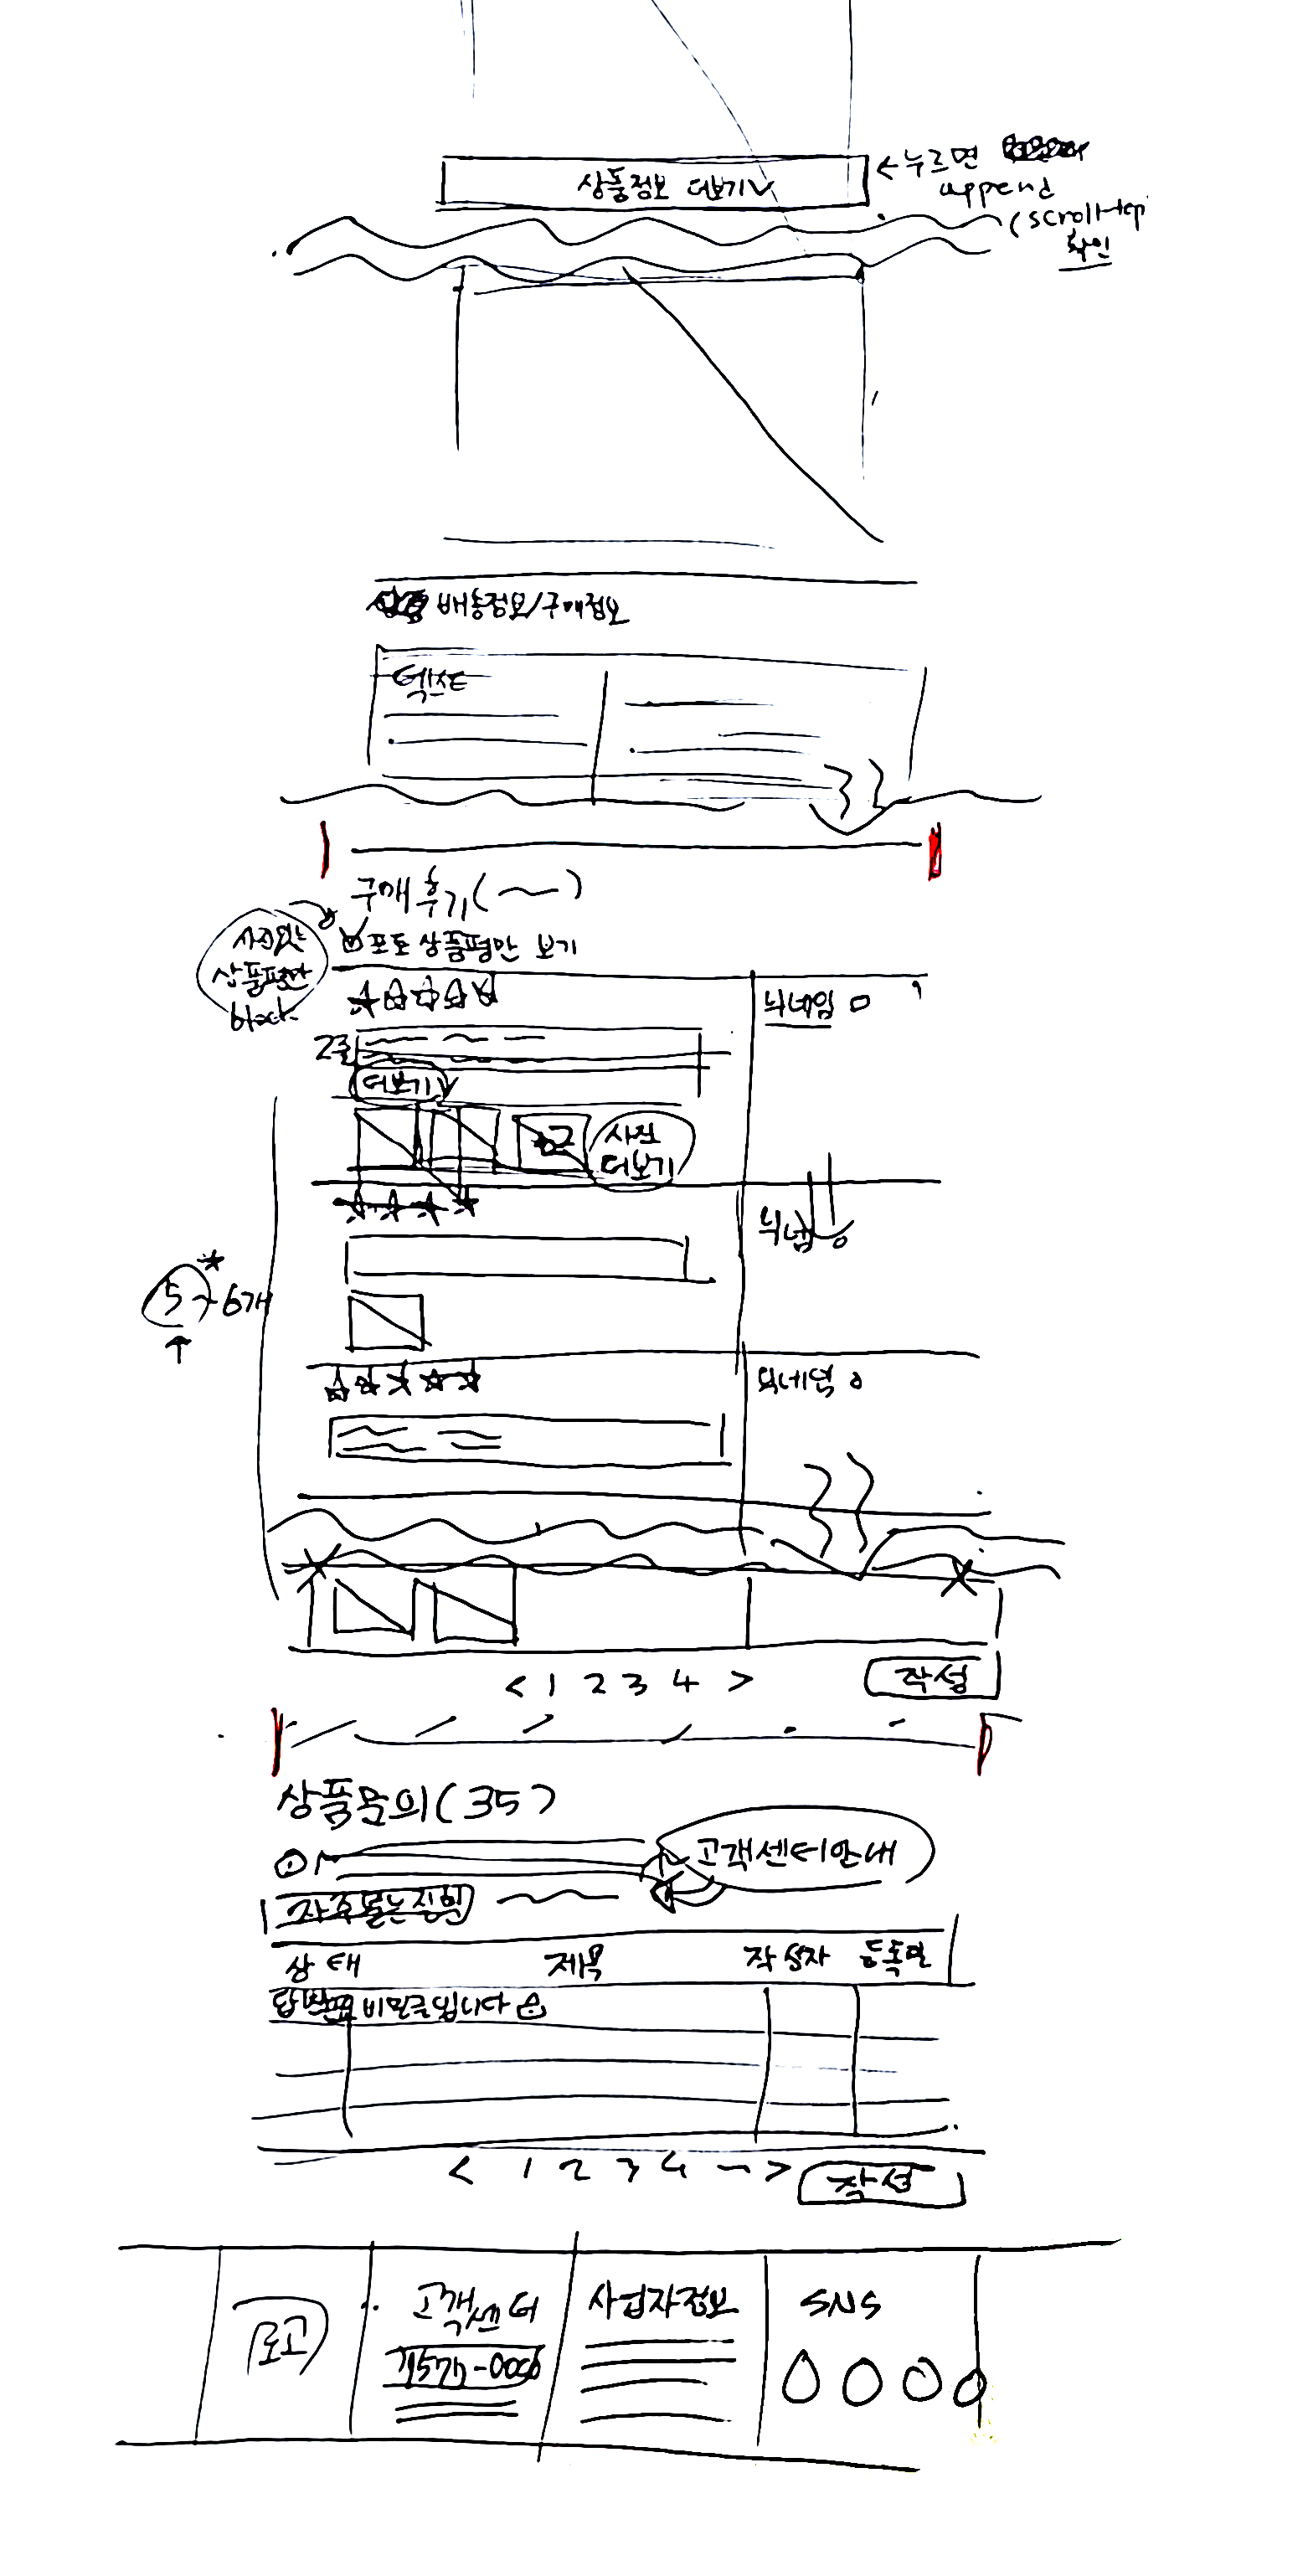 상품정보 더보기∨
←누르면
append
(scrollTop
확인
배송정보/구매정보
텍스트
구매후기(~)
포토 상품평만 보기
사진있는
상품평만
block
★☆☆☆☆
닉네임
2줄
더보기∨
+2
사진
더보기
닉넴
5~6개
닉네임
< 1 2 3 4 >
작성
상품문의(35)
고객센터안내
자주묻는질문
상태 제목 작성자 등록일
비밀글입니다
< 1 2 3 4 ~ >
작성
로고
고객센터
사업자정보
SNS